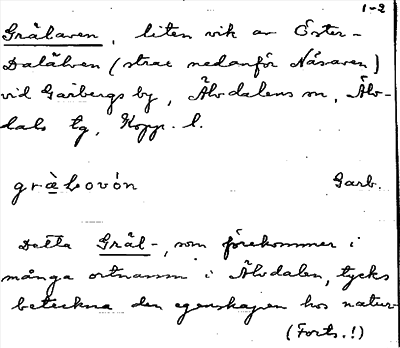 1-2
Grålaven, liten vik av Öster-
Dalälven (strax nedanför Nåsaven)
vid Garbergs by, Älvdalens sn, Älv-
dals tg, Kopp. l.
Garb.
Detta Grål-, som förekommer i
många ortnamn i Älvdalen, tycks
beteckna den egenskapen hos natur-
(Forts.!)